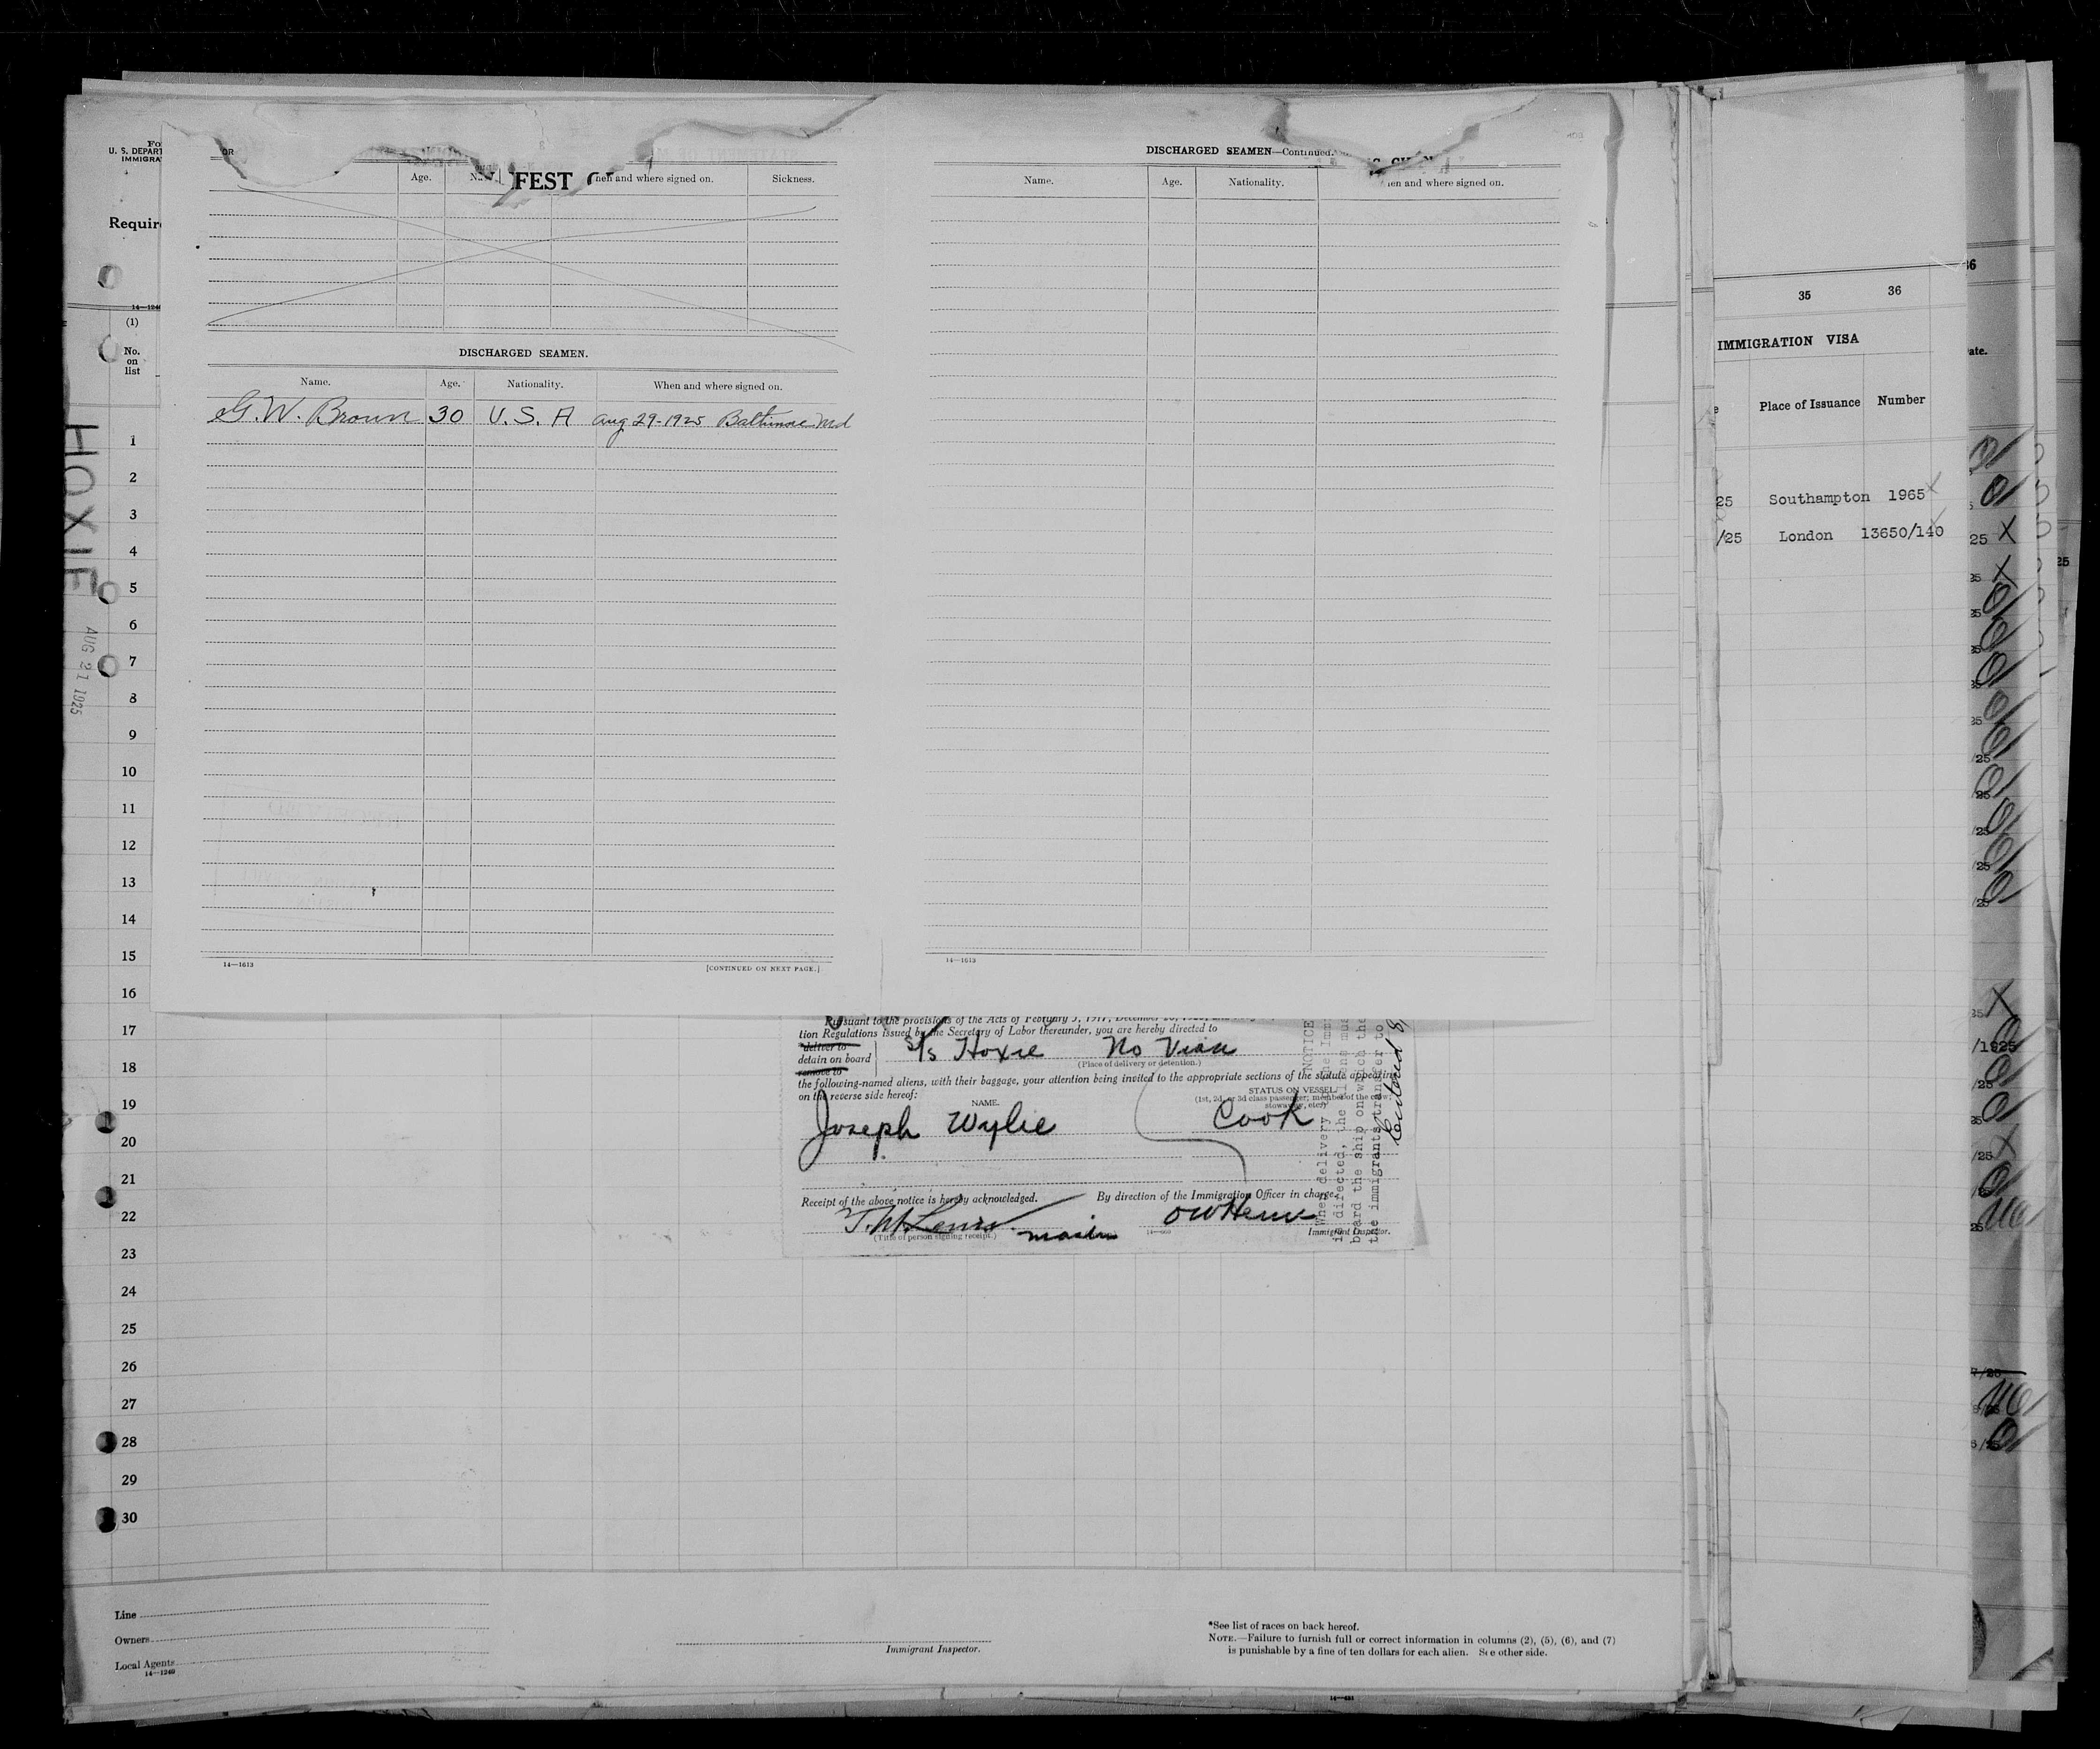 Fo
U. S. DEPART
IMMIGRA
Require
14—1240
(1)
No.
on
list
HOXIE
AUG 21 1925
1
2
3
4
5
6
7
8
9
10
11
12
13
14
15
16
17
18
19
20
21
22
23
24
25
26
27
28
29
30
OR
FEST
Age. hen and where signed on. Sickness.
DISCHARGED SEAMEN.
Name. Age. Nationality. When and where signed on.
G. W. Brown 30 U. S. A Aug 29-1925 Baltimore Md
14—1613 [CONTINUED ON NEXT PAGE.]
DISCHARGED SEAMEN—Continued.
Name. Age. Nationality. en and where signed on.
14—1613
Pursuant to the provisions of the Acts of February 5, 1917,
tion Regulations issued by the Secretary of Labor thereunder, you are hereby directed to
*deliver to
detain on board
remove to
S/S Hoxie No Visa
(Place of delivery or detention.)
the following-named aliens, with their baggage, your attention being invited to the appropriate sections of the statute appearing
on the reverse side hereof:
NAME.
STATUS ON VESSEL.
(1st, 2d, or 3d class passenger; member of the crew;
stowaway, etc.)
Joseph Wylie Cook
Receipt of the above notice is hereby acknowledged. By direction of the Immigration Officer in charge.
master
(Title of person signing receipt.)
Immigrant Inspector.
NOTICE
When delivery the Imm
is directed, the aliens mus
board the ship on which the
the immigrants transfer to
35 36
IMMIGRATION VISA
Place of Issuance Number
25 Southampton 1965
/25 London 13650/140
36
ate.
25
/1925
Line
Owners
Local Agents
14—1240
Immigrant Inspector.
*See list of races on back hereof.
NOTE.—Failure to furnish full or correct information in columns (2), (5), (6), and (7)
is punishable by a fine of ten dollars for each alien. See other side.